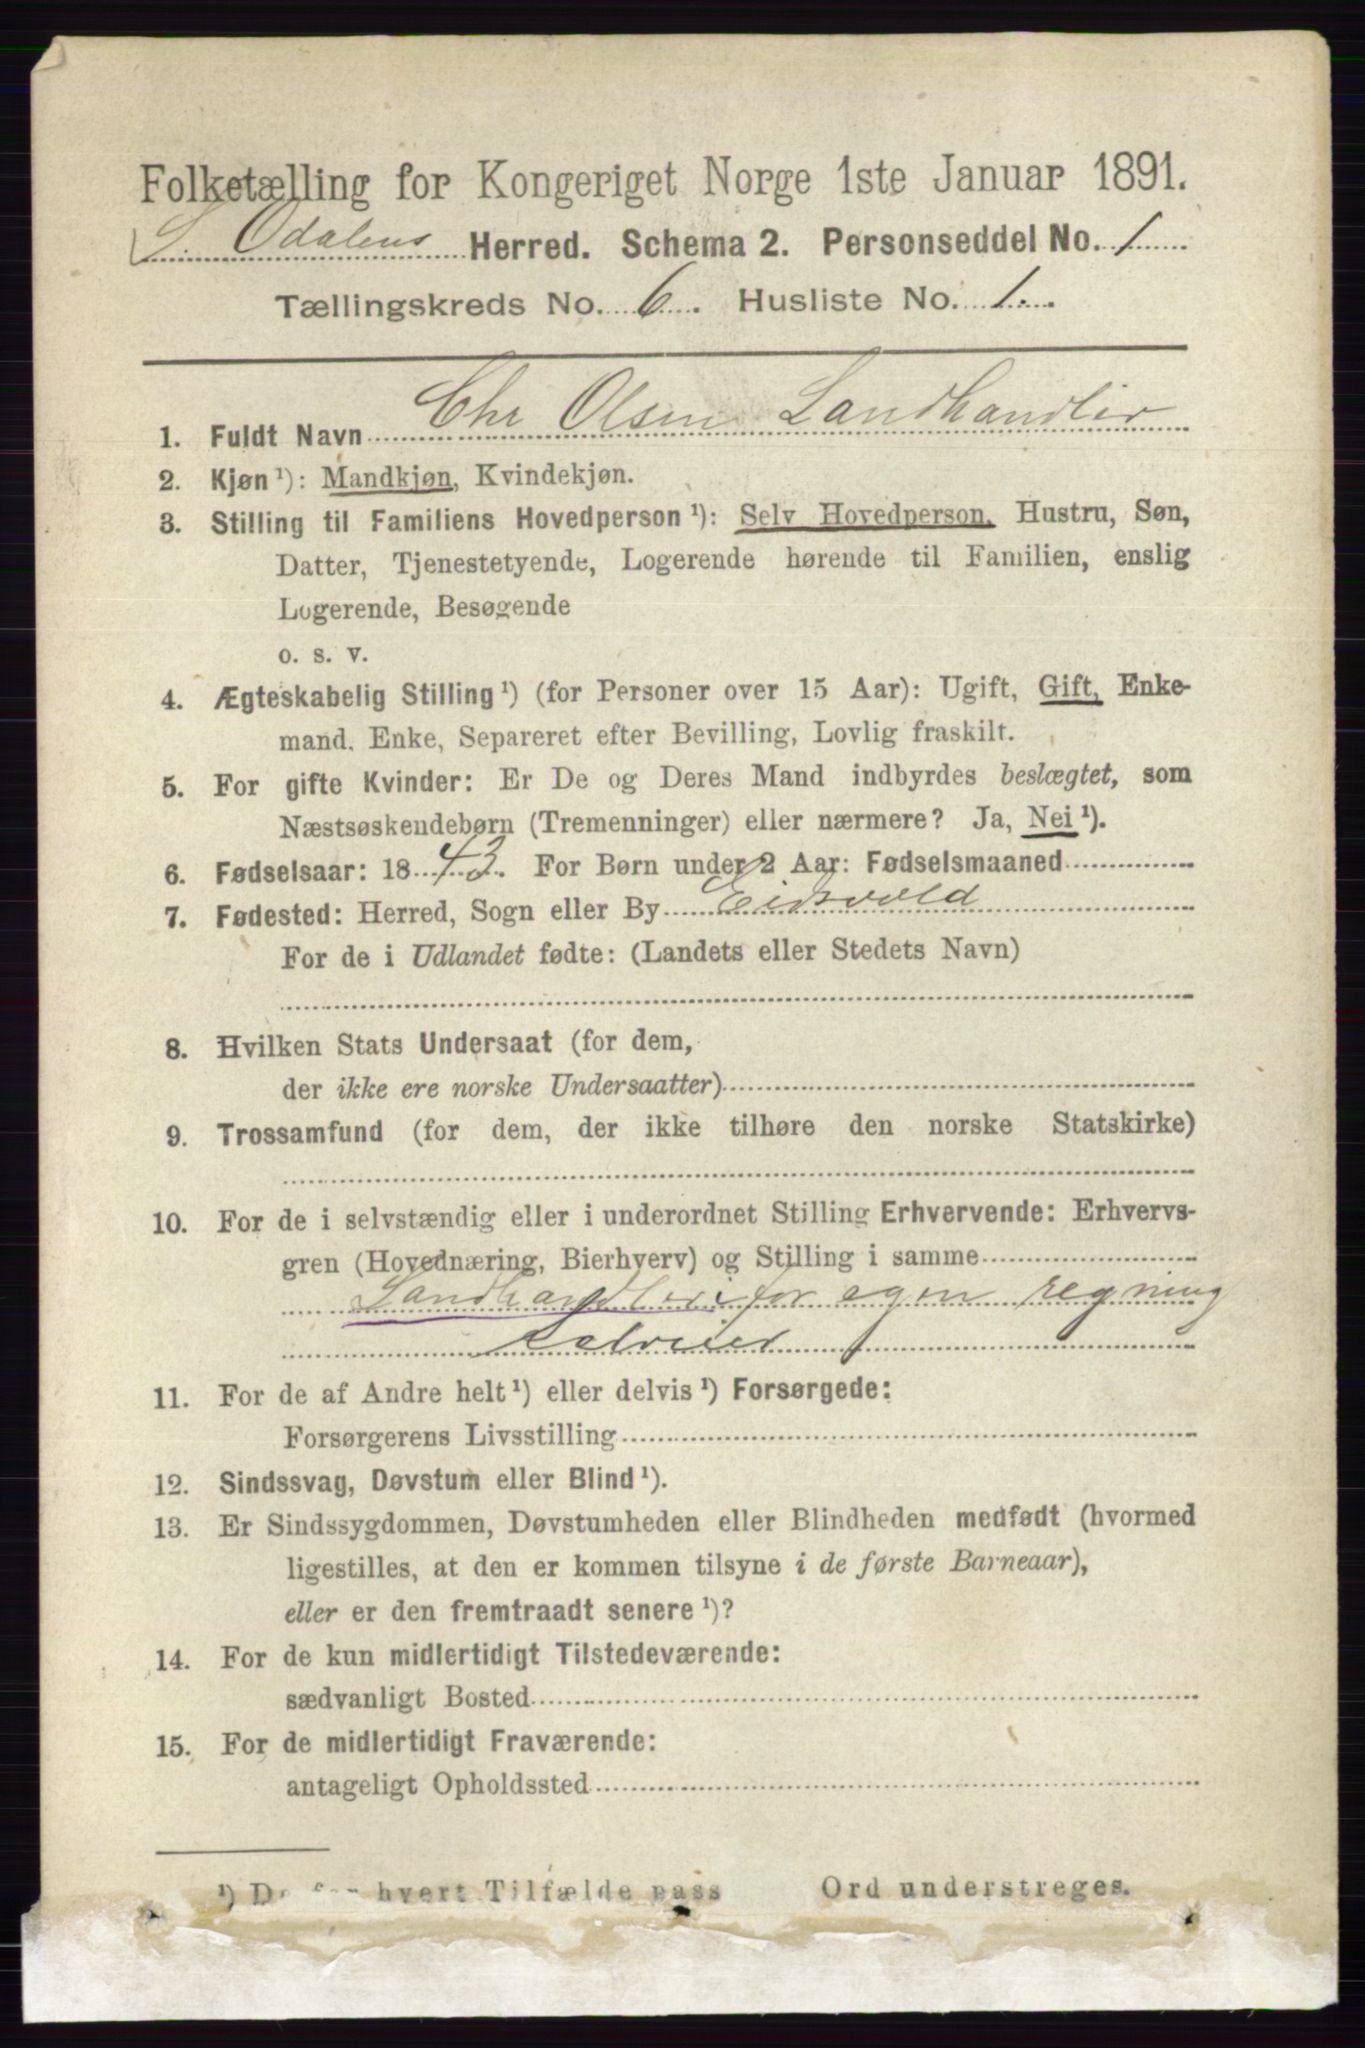 Folketælling for Kongeriget Norge 1ste Januar 1891.
S. Odalens Herred. Schema 2. Personseddel No. 1
Tællingskreds No. 6. Husliste No. 1.
1. Fuldt Navn Chr Olsen Landhandler
2. Kjøn ¹): Mandkjøn, Kvindekjøn.
3. Stilling til Familiens Hovedperson ¹): Selv Hovedperson, Hustru, Søn,
Datter, Tjenestetyende, Logerende hørende til Familien, enslig
Logerende, Besøgende
o. s. v.
4. Ægteskabelig Stilling ¹) (for Personer over 15 Aar): Ugift, Gift, Enke-
mand, Enke, Separeret efter Bevilling, Lovlig fraskilt.
5. For gifte Kvinder: Er De og Deres Mand indbyrdes beslægtet, som
Næstsøskendebørn (Tremenninger) eller nærmere? Ja, Nei ¹).
6. Fødselsaar: 1843. For Børn under 2 Aar: Fødselsmaaned
7. Fødested: Herred, Sogn eller By Eidsvold
For de i Udlandet fødte: (Landets eller Stedets Navn)
8. Hvilken Stats Undersaat (for dem,
der ikke ere norske Undersaatter)
9. Trossamfund (for dem, der ikke tilhøre den norske Statskirke)
10. For de i selvstændig eller i underordnet Stilling Erhvervende: Erhvervs-
gren (Hovednæring, Bierhverv) og Stilling i samme
Landhandleri for egen regning
11. For de af Andre helt ¹) eller delvis ¹) Forsørgede:
Forsørgerens Livsstilling
12. Sindssvag, Døvstum eller Blind ¹).
13. Er Sindssygdommen, Døvstumheden eller Blindheden medfødt (hvormed
ligestilles, at den er kommen tilsyne i de første Barneaar),
eller er den fremtraadt senere ¹)?
14. For de kun midlertidigt Tilstedeværende:
sædvanligt Bosted
15. For de midlertidigt Fraværende:
antageligt Opholdssted
¹) De for hvert Tilfælde pass Ord understreges.